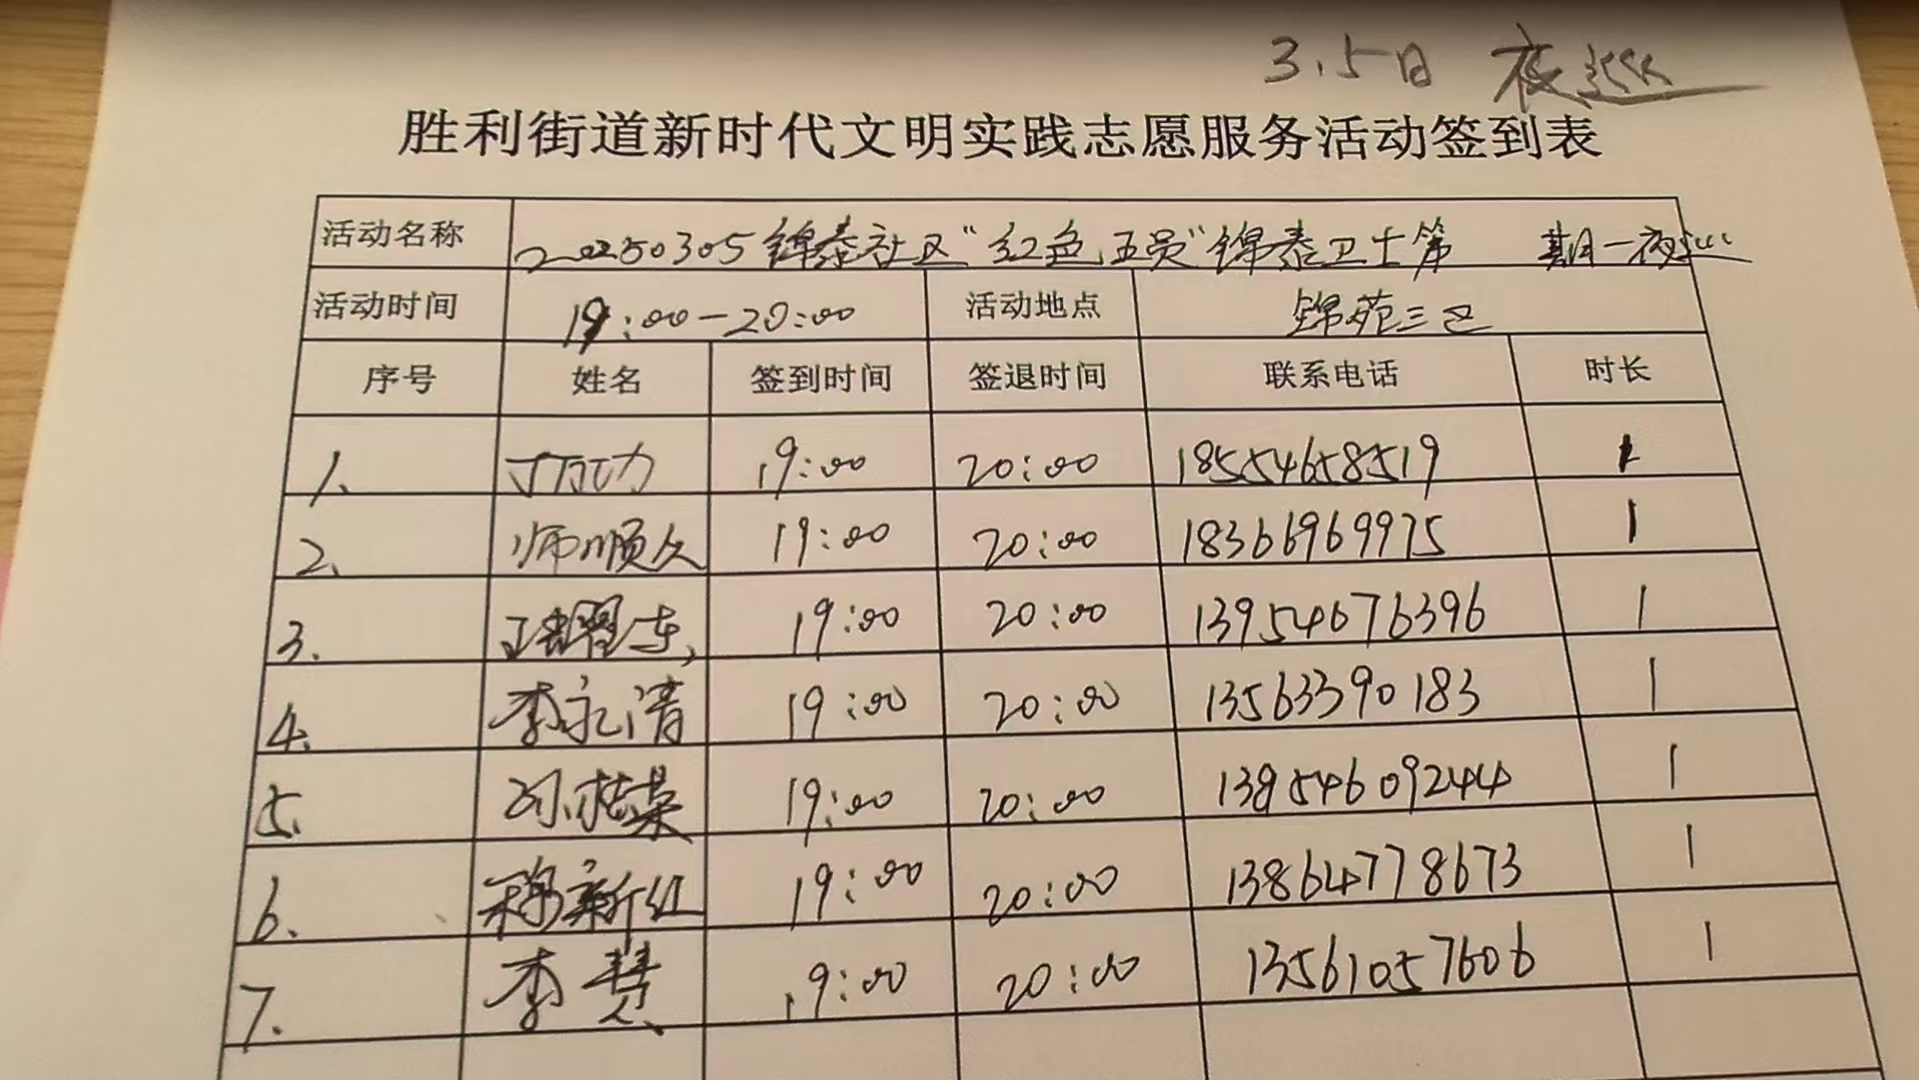 3.5日 夜巡
胜利街道新时代文明实践志愿服务活动签到表
活动名称 20250305锦泰社区“红色五员”锦泰卫士第 期一夜巡
活动时间 19:00-20:00 活动地点 锦苑三区
序号 姓名 签到时间 签退时间 联系电话 时长
1. 丁万力 19:00 20:00 18554658519 1
2. 师顺久 19:00 20:00 18366969975 1
3. 19:00 20:00 13954676396 1
4. 李永清 19:00 20:00 13563390183 1
5. 19:00 20:00 13854609244 1
6. 穆新红 19:00 20:00 13864778673 1
7. 李慧 19:00 20:00 13561057606 1